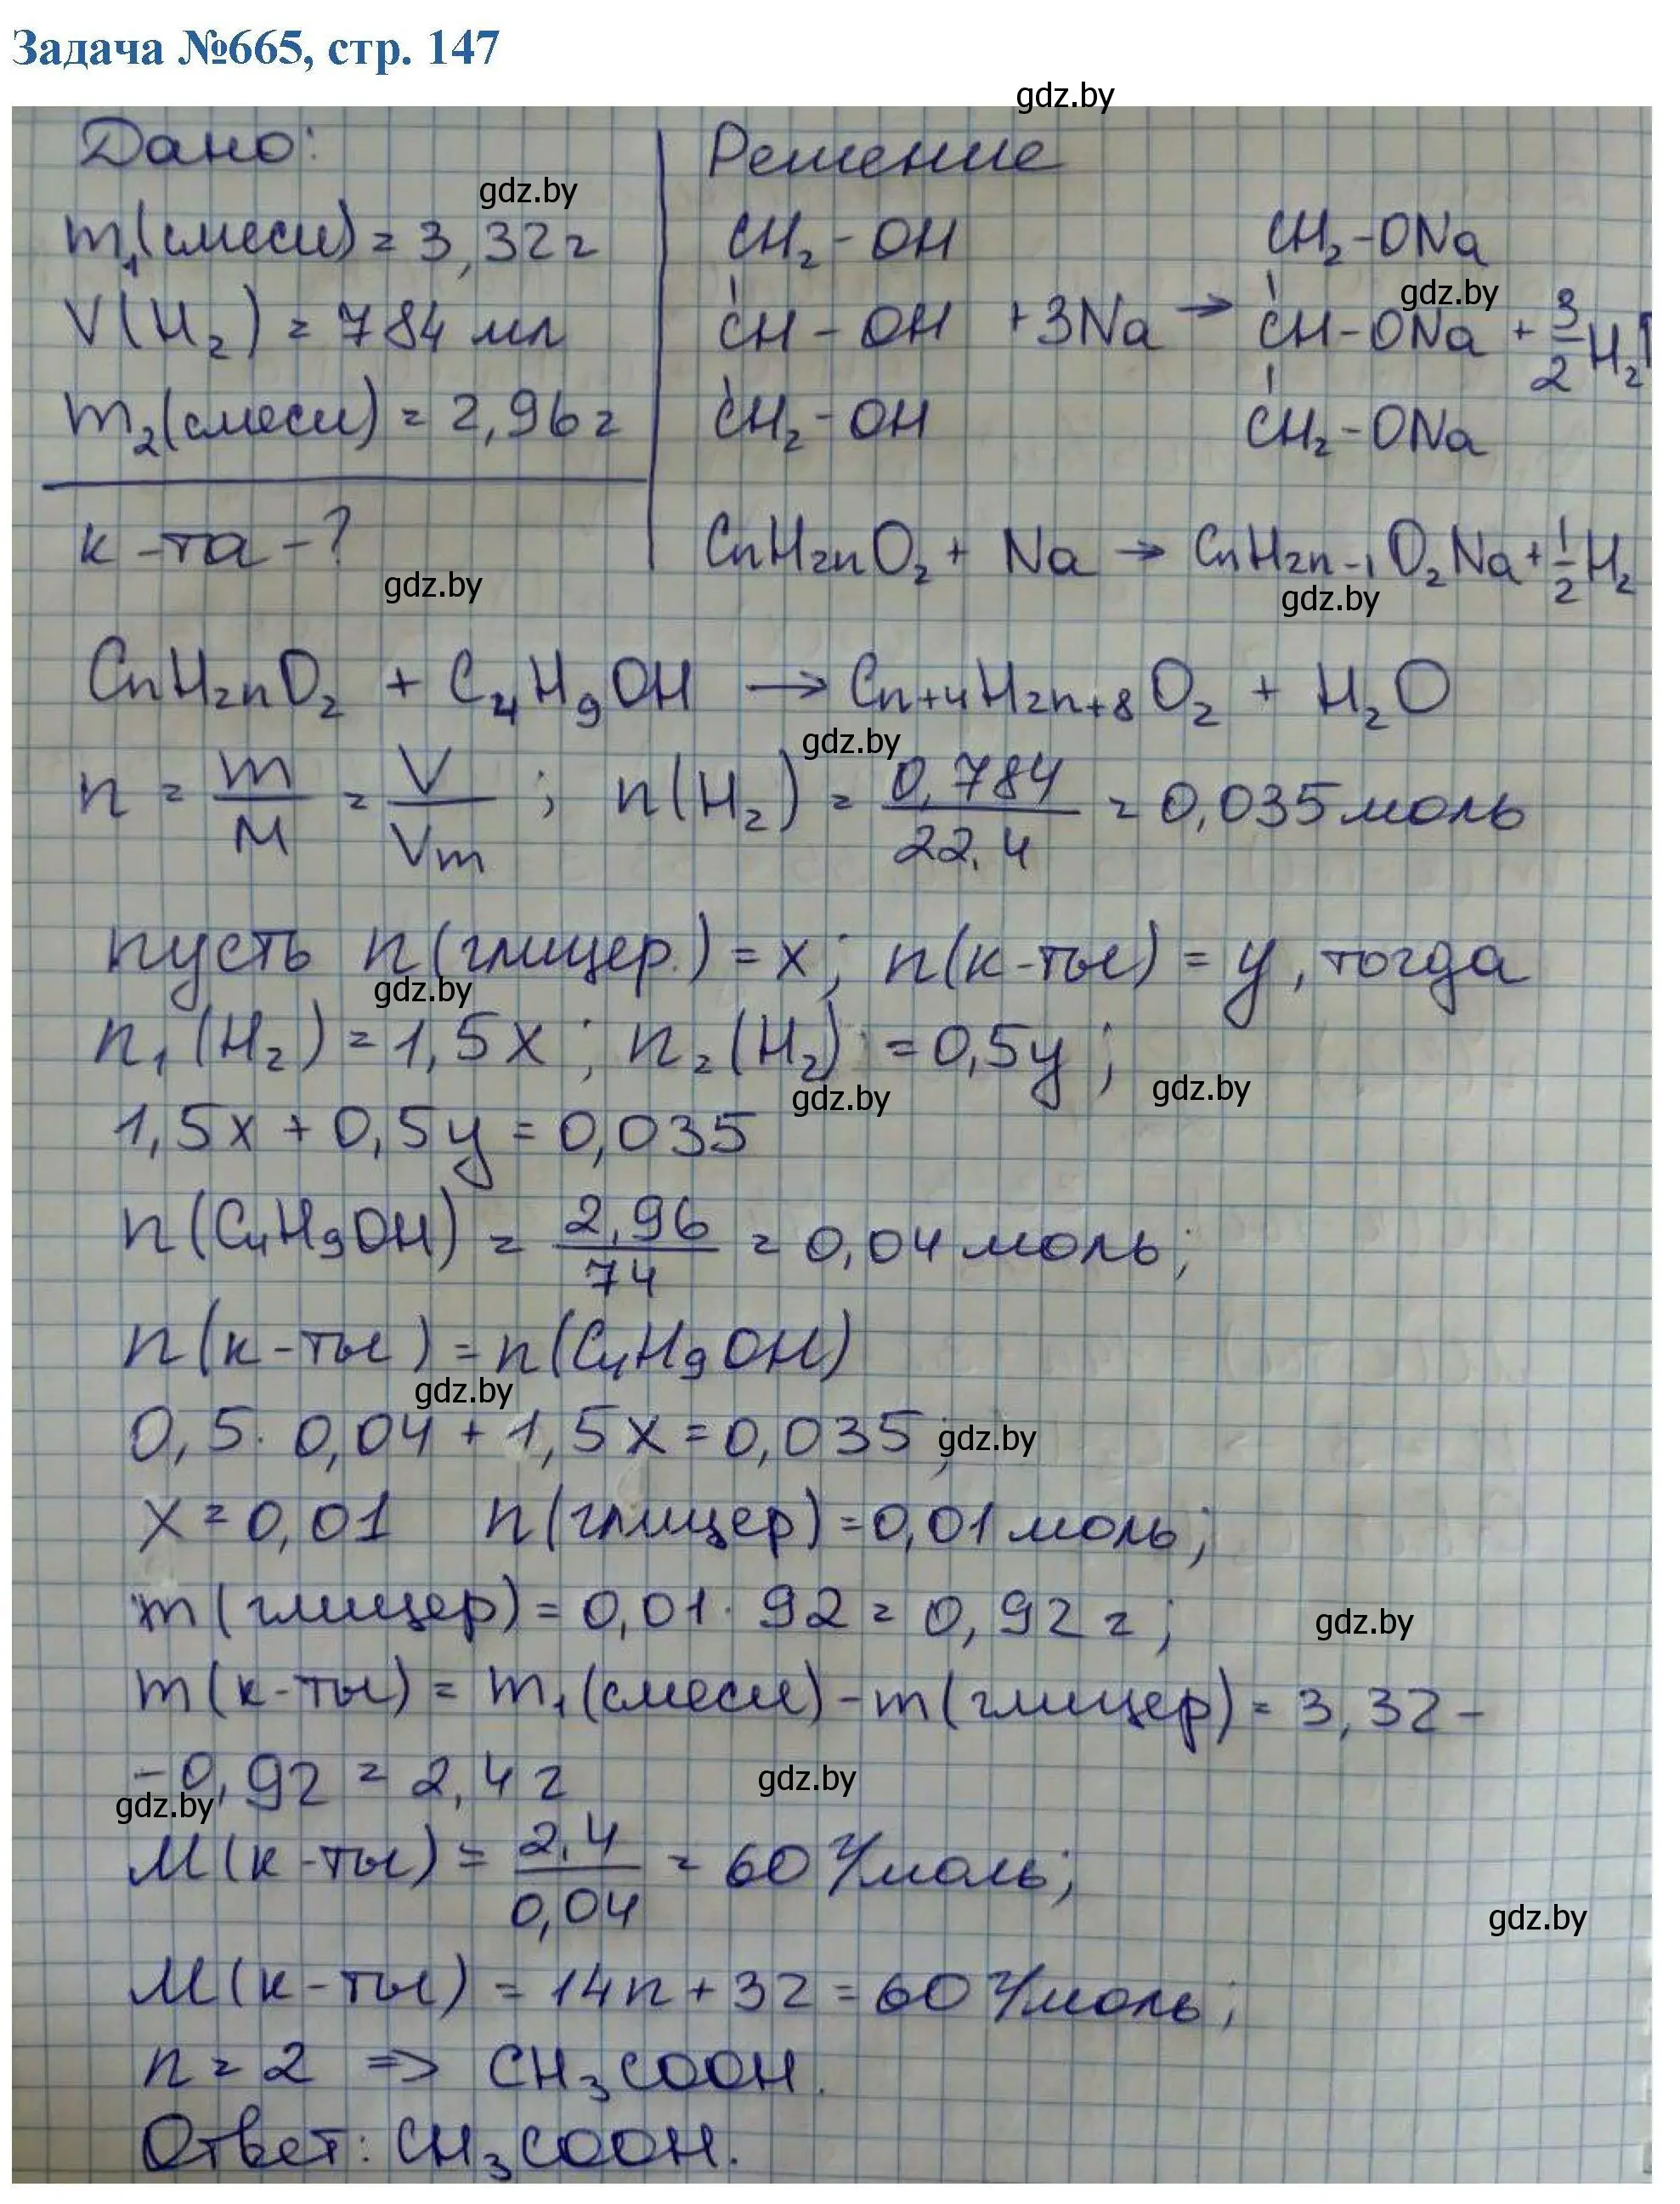 Задача №665, стр. 147
gdz.by
Дано:
m₁(смеси) = 3,32 г
gdz.by
V(H₂) = 784 мл
m₂(смеси) = 2,96 г
к-та - ?
gdz.by
Решение
CH₂-OH CH₂-ONa
gdz.by
CH-OH +3Na → CH-ONa + 3/2 H₂↑
CH₂-OH CH₂-ONa
CnH2nO₂ + Na → CnH2n-1O₂Na + 1/2 H₂
gdz.by
CnH2nO₂ + C₄H₉OH → Cn+4H2n+8O₂ + H₂O
gdz.by
n = m/M = V/Vm ; n(H₂) = 0,784/22.4 = 0,035 моль
пусть n(глицер.) = x; n(к-ты) = y, тогда
gdz.by
n₁(H₂) = 1,5x ; n₂(H₂) = 0,5y ;
gdz.by
gdz.by
1,5x + 0,5y = 0,035
n(C₄H₉OH) = 2,96/74 = 0,04 моль;
n(к-ты) = n(C₄H₉OH)
gdz.by
0,5 · 0,04 + 1,5x = 0,035;
gdz.by
x = 0,01 n(глицер) = 0,01 моль;
m(глицер) = 0,01 · 92 = 0,92 г;
gdz.by
m(к-ты) = m₁(смеси) - m(глицер) = 3,32 -
- 0,92 = 2,4 г
gdz.by
gdz.by
M(к-ты) = 2.4/0,04 = 60 г/моль;
gdz.by
M(к-ты) = 14n + 32 = 60 г/моль;
n = 2 => CH₃COOH.
Ответ: CH₃COOH.